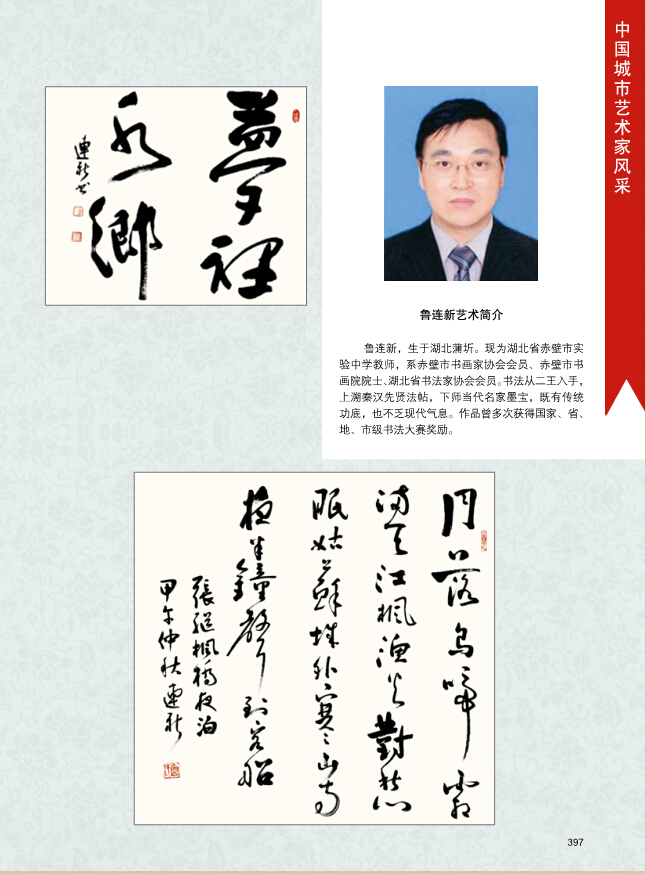 中国城市艺术家风采
夢裡
水鄉
連新书
鲁连新艺术简介
鲁连新，生于湖北蒲圻。现为湖北省赤壁市实
验中学教师，系赤壁市书画家协会会员、赤壁市书
画院院士、湖北省书法家协会会员。书法从二王入手，
上溯秦汉先贤法帖，下师当代名家墨宝，既有传统
功底，也不乏现代气息。作品曾多次获得国家、省、
地、市级书法大赛奖励。
月落烏啼霜
滿天江楓漁火對愁
眠姑蘇城外寒山寺
夜半鐘聲到客船
張繼楓橋夜泊
甲午仲秋連新
397